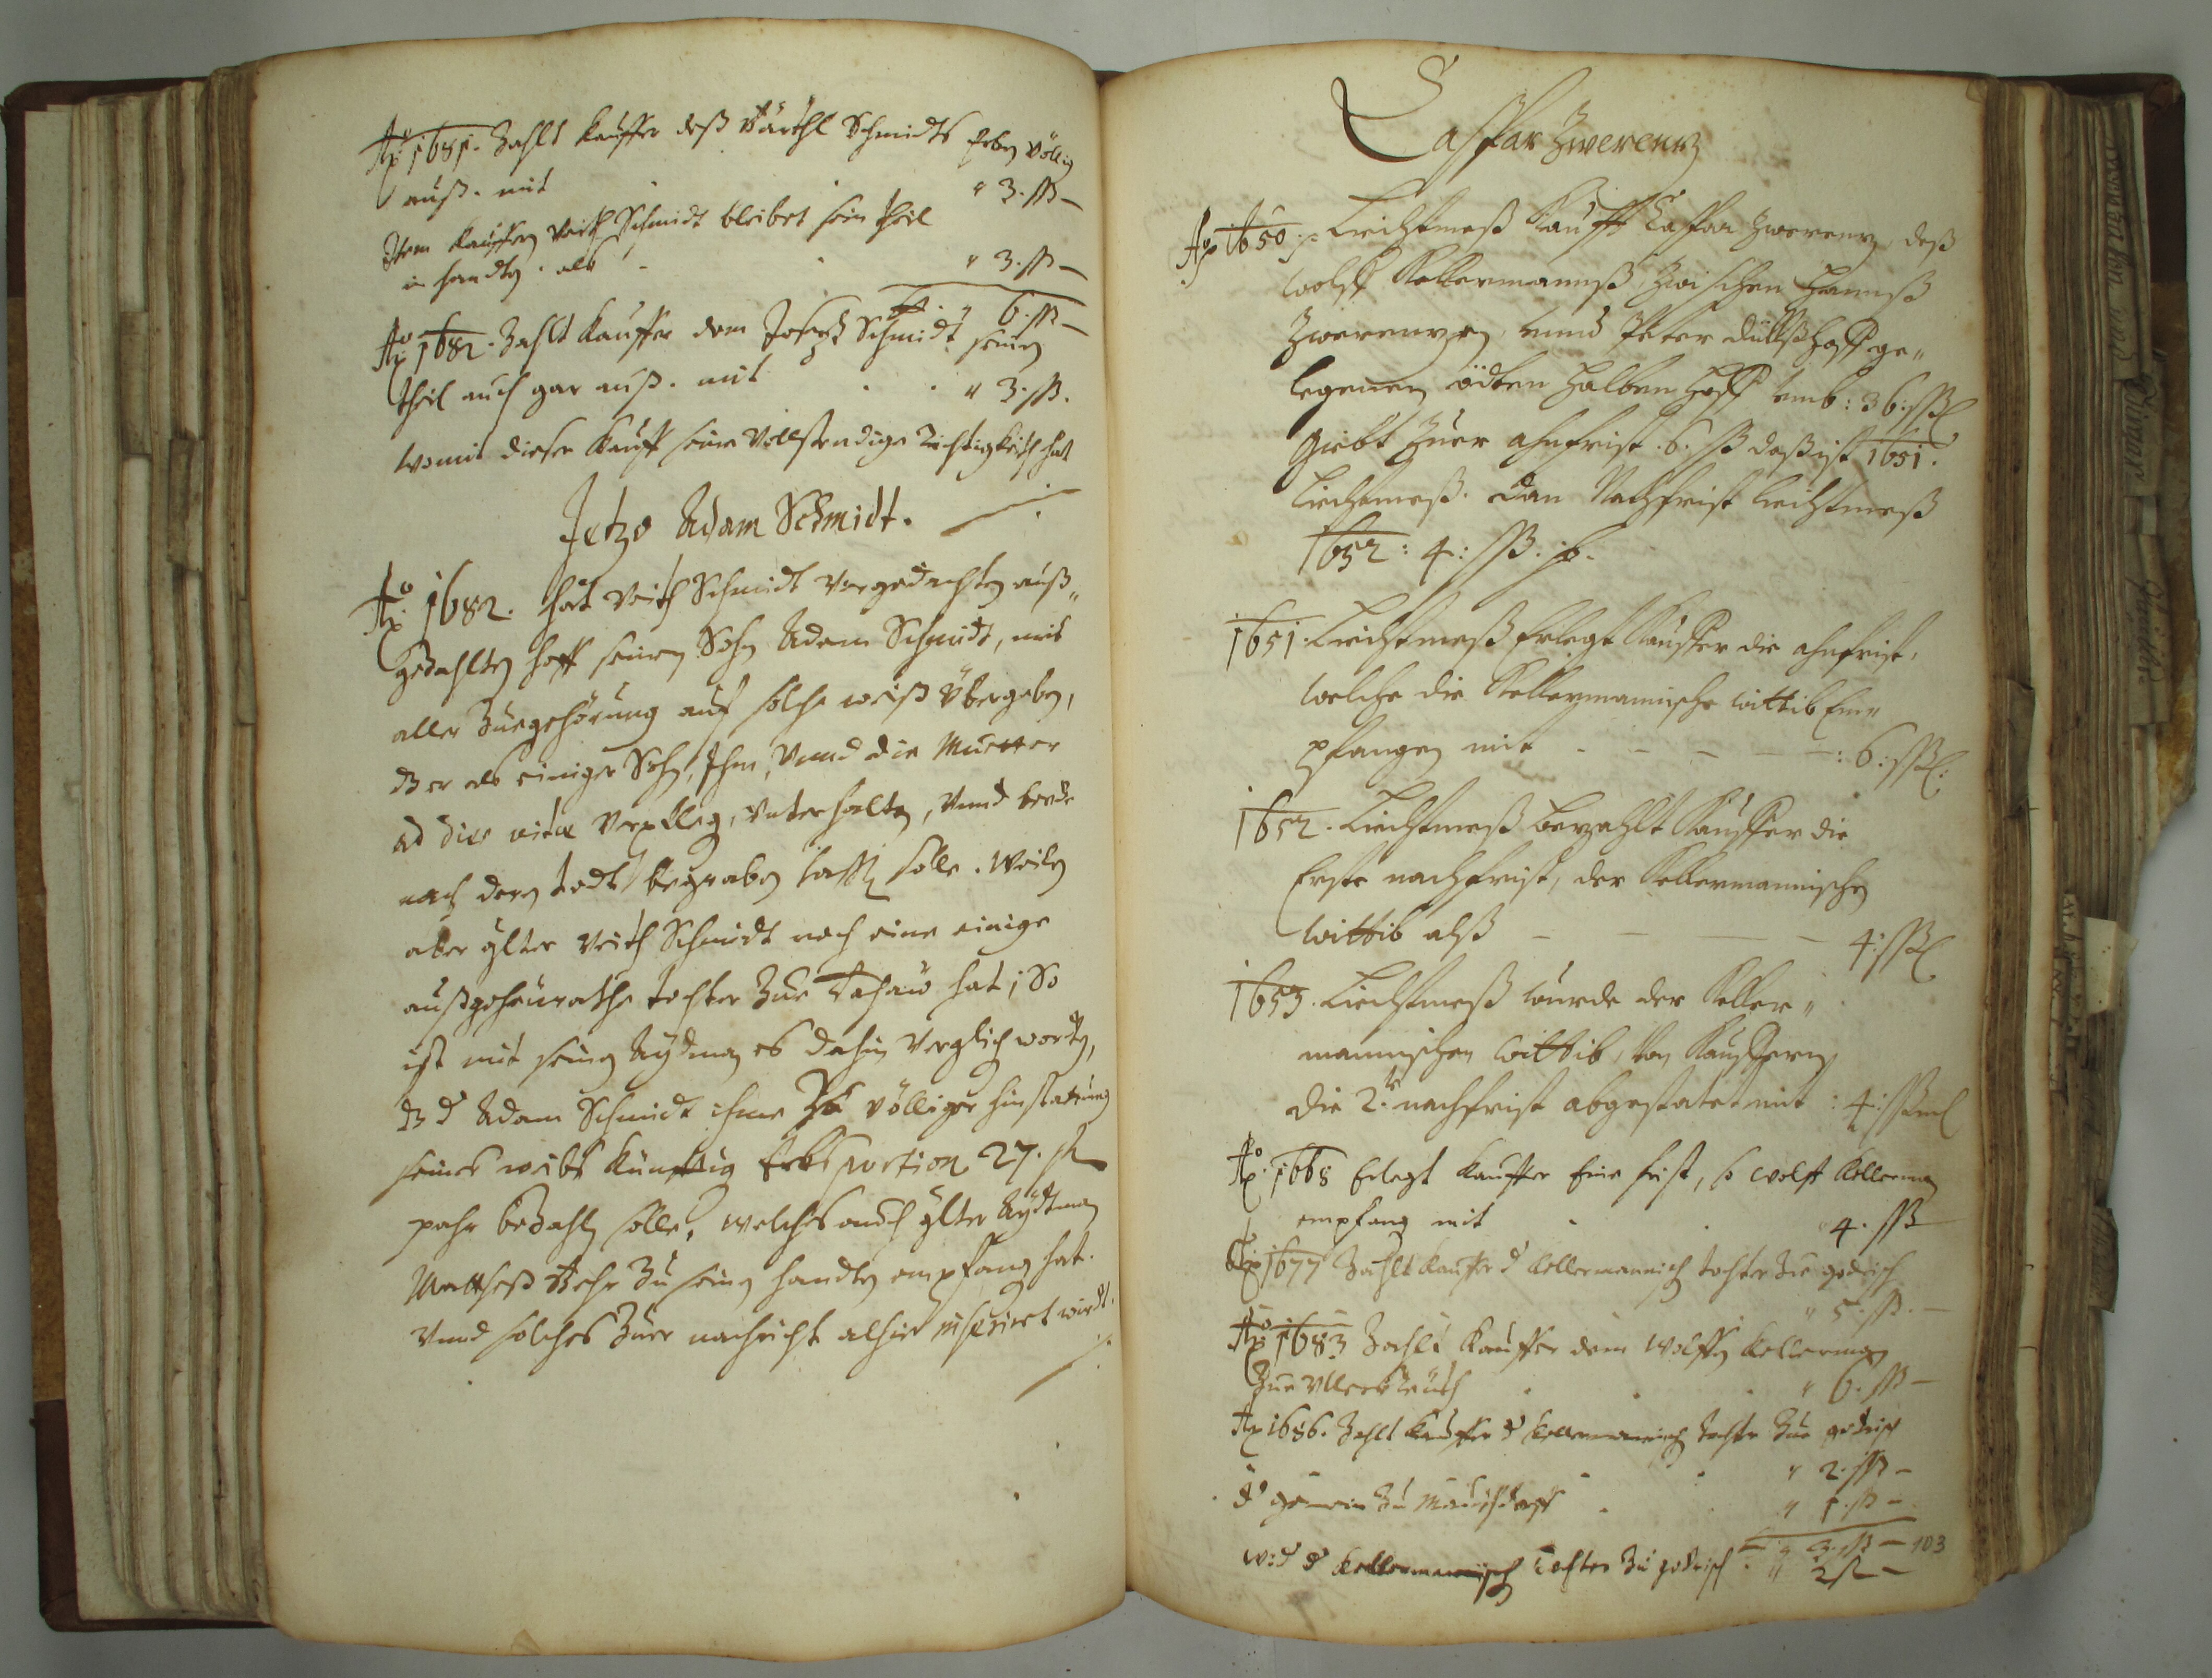 Ao 1681. Zahlt Kauffer deß Bärthl Schmidts Erben völlig
auß. mit " 3. ß –
Item Kauffern Veith Schmidt bleibet sein theil
in handten. als " 3. ß –
" 6. ß –
Ao 1682. Zahlt Kauffer dem Joseph Schmidt seinen
theil auch gar auß. mit " 3. ß.
womit dieser Kauff seine Vollstendige Richtigkeith hat
Jetzo Adam Schmidt.
Ao 1682. hat Veith Schmidt vorgedachten auß„
gezahlten hoff seinen Sohn Adam Schmidt, mit
aller Zuegehörung auf solche weiß übergeben,
dz er als einiger Sohn, Ihm, Vnnd die Muetter
ad dies vitæ Verpfleg, vnterhalten, Vnnd beede
nach deren todt begraben lassen solle. Weilen
aber alter Veith Schmidt noch eine einige
außgeheurathe tochter Zue Tachau hat, So
ist mit seinen Aydman es dahin Verglich worden,
dz d Adam Schmidt ihme Zu völliger hinstattung
seines weibs künfftig Erbsportion 27. fl
pahr bezahlen solle, welches auch alter Aydtman
Mattheß Behr Zu seinen handten empfang hat.
Vnnd solches Zuer nachricht alhier inserirt wirdt.
Caspar Zwerenz
Ao 1650. Liechtmeß Kaufft Caspar Zwerenz, deß
Wolff Kellermannß, Zwischen Hannß
Zwerenzen, vnnd Peter Düllß Hoff ge„
legenen ödten halben Hoff vmb: 36: ß
Giebt Zuer ahnfrist. 6. ß daß ist 1651.
Liechtmeß. dan Nachfrist Liechtmeß
1652: 4: ß.
1651. Liechtmeß Erlegt Kauffer die ahnfrist,
welche die Kellermannische wittib Em„
pfangen mit – – – – : 6: ß
1652. Liechtmeß bezahlt Kauffer die
Erste nachfrist, der Kellermannischen
Wittib alß – – – – 4: ß
1653. Liechtmeß wurde der Keller„
mannischen Wittib, von Kauffern
die 2.te nachfrist abgestatet mit : 4: ß
Ao 1668 Erlegt Kauffer Eine frist, so Wolff Kellerman
empfang mit " 4. ß
Ao 1677 Zahlt Kauffer d Kellermannisch tochter Zue godrisch
" 5. ß. –
Ao 1683 Zahlt Kauffer dem Wolffen Kellerman
Zue " 6. ß –
Ao 1686. Zahlt Kauffer d Kellermannisch tochter Zue godrisch
" 2. ß –
d gemein Zu " 1. ß –
" 3. ß – 103
d Kellermannisch Tochter Zu godrisch " 2 ß –